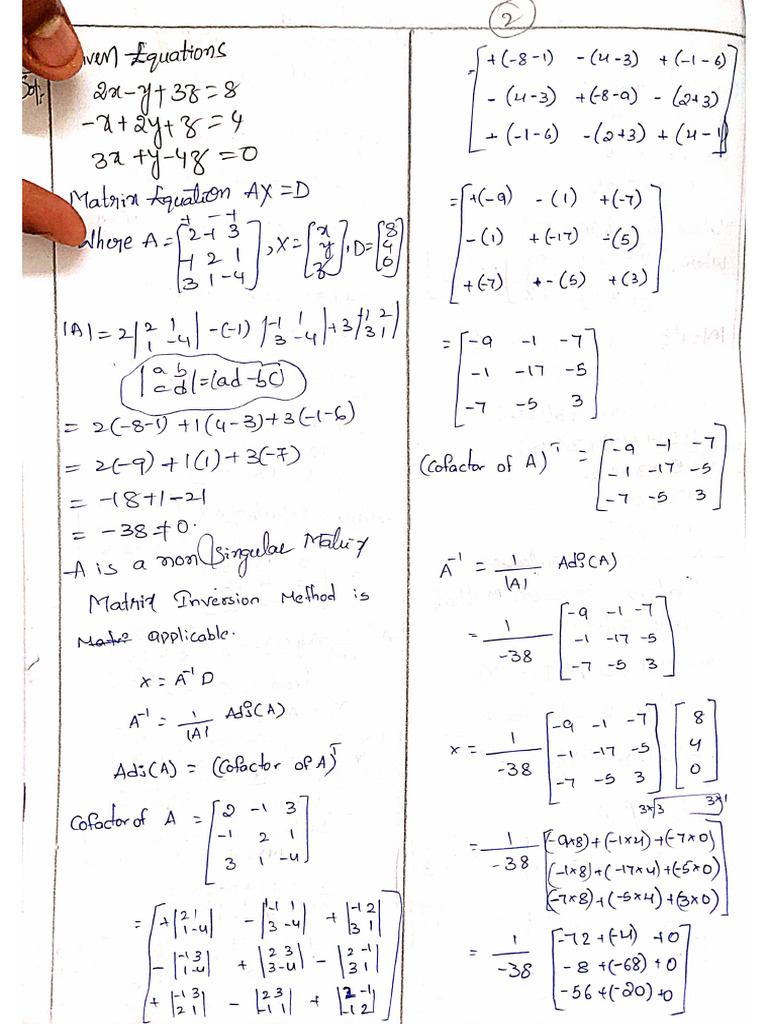 2
Given Equations
Sol:
2x-y+3z=8
-x+2y+z=4
3x+y-4z=0
Matrix Equation AX=D
+ - +
Where A = [2 -1 3; -1 2 1; 3 1 -4], X = [x; y; z], D = [8; 4; 0]
|A| = 2|2 1; 1 -4| -(-1) |-1 1; 3 -4| + 3|-1 2; 3 1|
|a b; c d| = (ad-bc)
= 2(-8-1) +1(4-3)+3(-1-6)
= 2(-9)+1(1)+3(-7)
= -18+1-21
= -38≠0.
A is a non singular Matrix
Matrix Inversion Method is
applicable.
x = A⁻¹ D
A⁻¹ = 1/|A| Adj(A)
Adj(A) = (Cofactor of A)ᵀ
Cofactor of A = [2 -1 3; -1 2 1; 3 1 -4]
= [+|2 1; 1 -4| -|-1 1; 3 -4| +|-1 2; 3 1|
-|-1 3; 1 -4| +|2 3; 3 -4| -|2 -1; 3 1|
+|-1 3; 2 1| -|2 3; -1 1| +|2 -1; -1 2|]
= [+(-8-1) -(4-3) +(-1-6)
-(4-3) +(-8-9) -(2+3)
+(-1-6) -(2+3) +(4-1)]
= [+(-9) -(1) +(-7)
-(1) +(-17) -(5)
+(-7) +-(5) +(3)]
= [-9 -1 -7
-1 -17 -5
-7 -5 3]
(Cofactor of A)ᵀ = [-9 -1 -7; -1 -17 -5; -7 -5 3]
A⁻¹ = 1/|A| Adj(A)
= 1/-38 [-9 -1 -7; -1 -17 -5; -7 -5 3]
x = 1/-38 [-9 -1 -7; -1 -17 -5; -7 -5 3] [8; 4; 0]
3×3 3×1
= 1/-38 [(-9×8)+(-1×4)+(-7×0)
(-1×8)+(-17×4)+(-5×0)
(-7×8)+(-5×4)+(3×0)]
= 1/-38 [-72+(-4)+0
-8+(-68)+0
-56+(-20)+0]